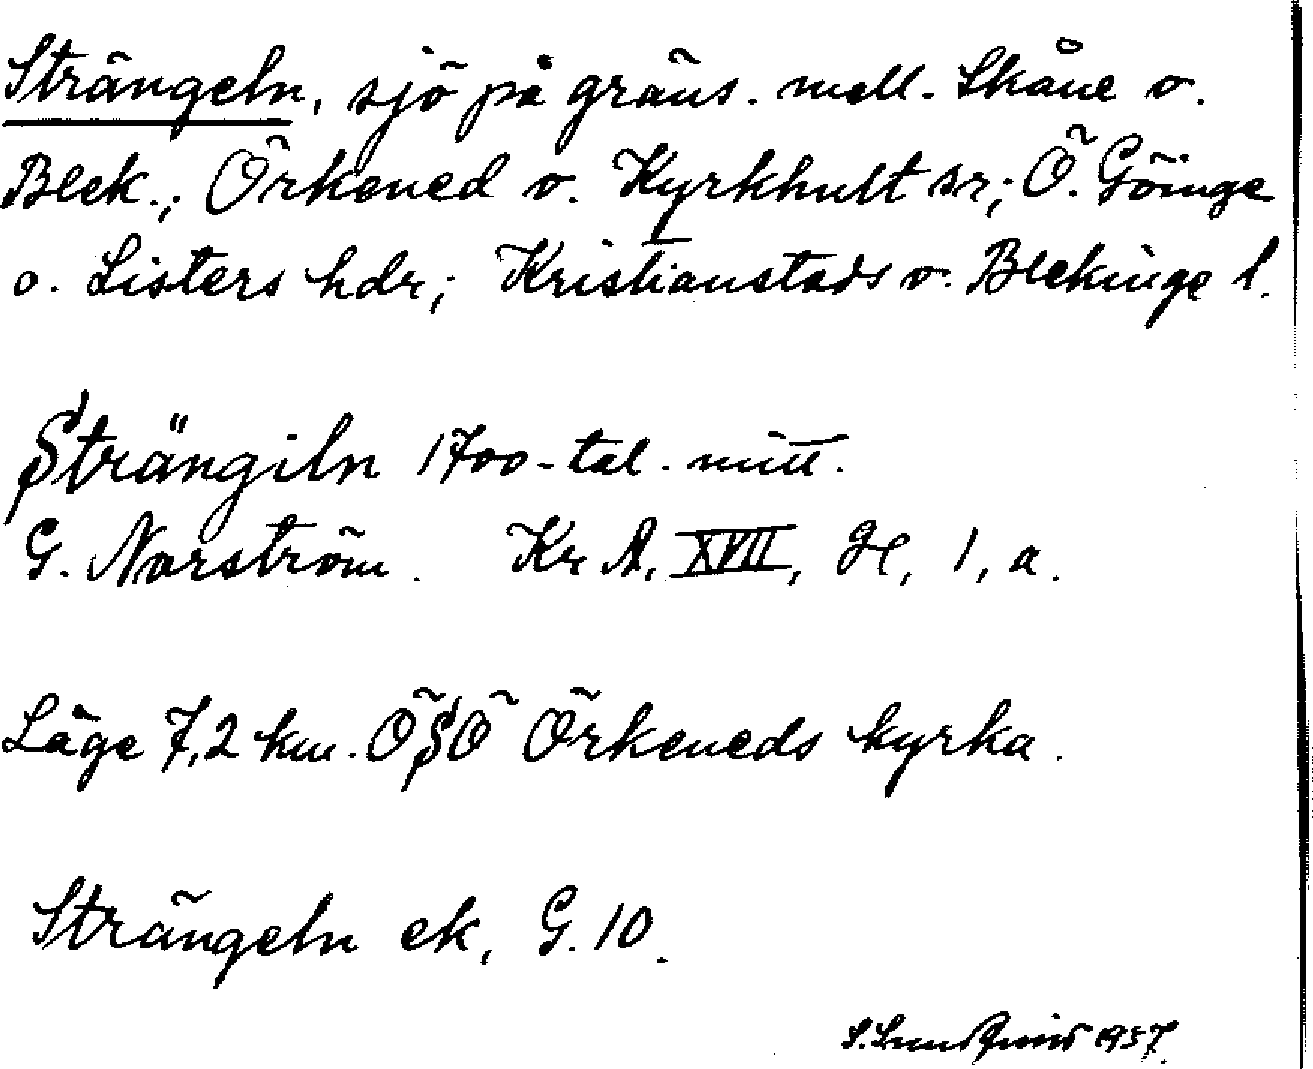 Strängeln, sjö på gräns. mell. Skåne o.
Blek.; Örkened o. Kyrkhult sr; Ö. Göinge
o. Listers hdr; Kristianstads o. Blekinge l.
Strängiln 1700-tal. mitt.
G. Norström. Kr A, XVII, H, 1, a.
Läge 7,2 km. ÖSÖ Örkeneds kyrka.
Strängeln ek, G. 10.
S. Lundqvist 1937.